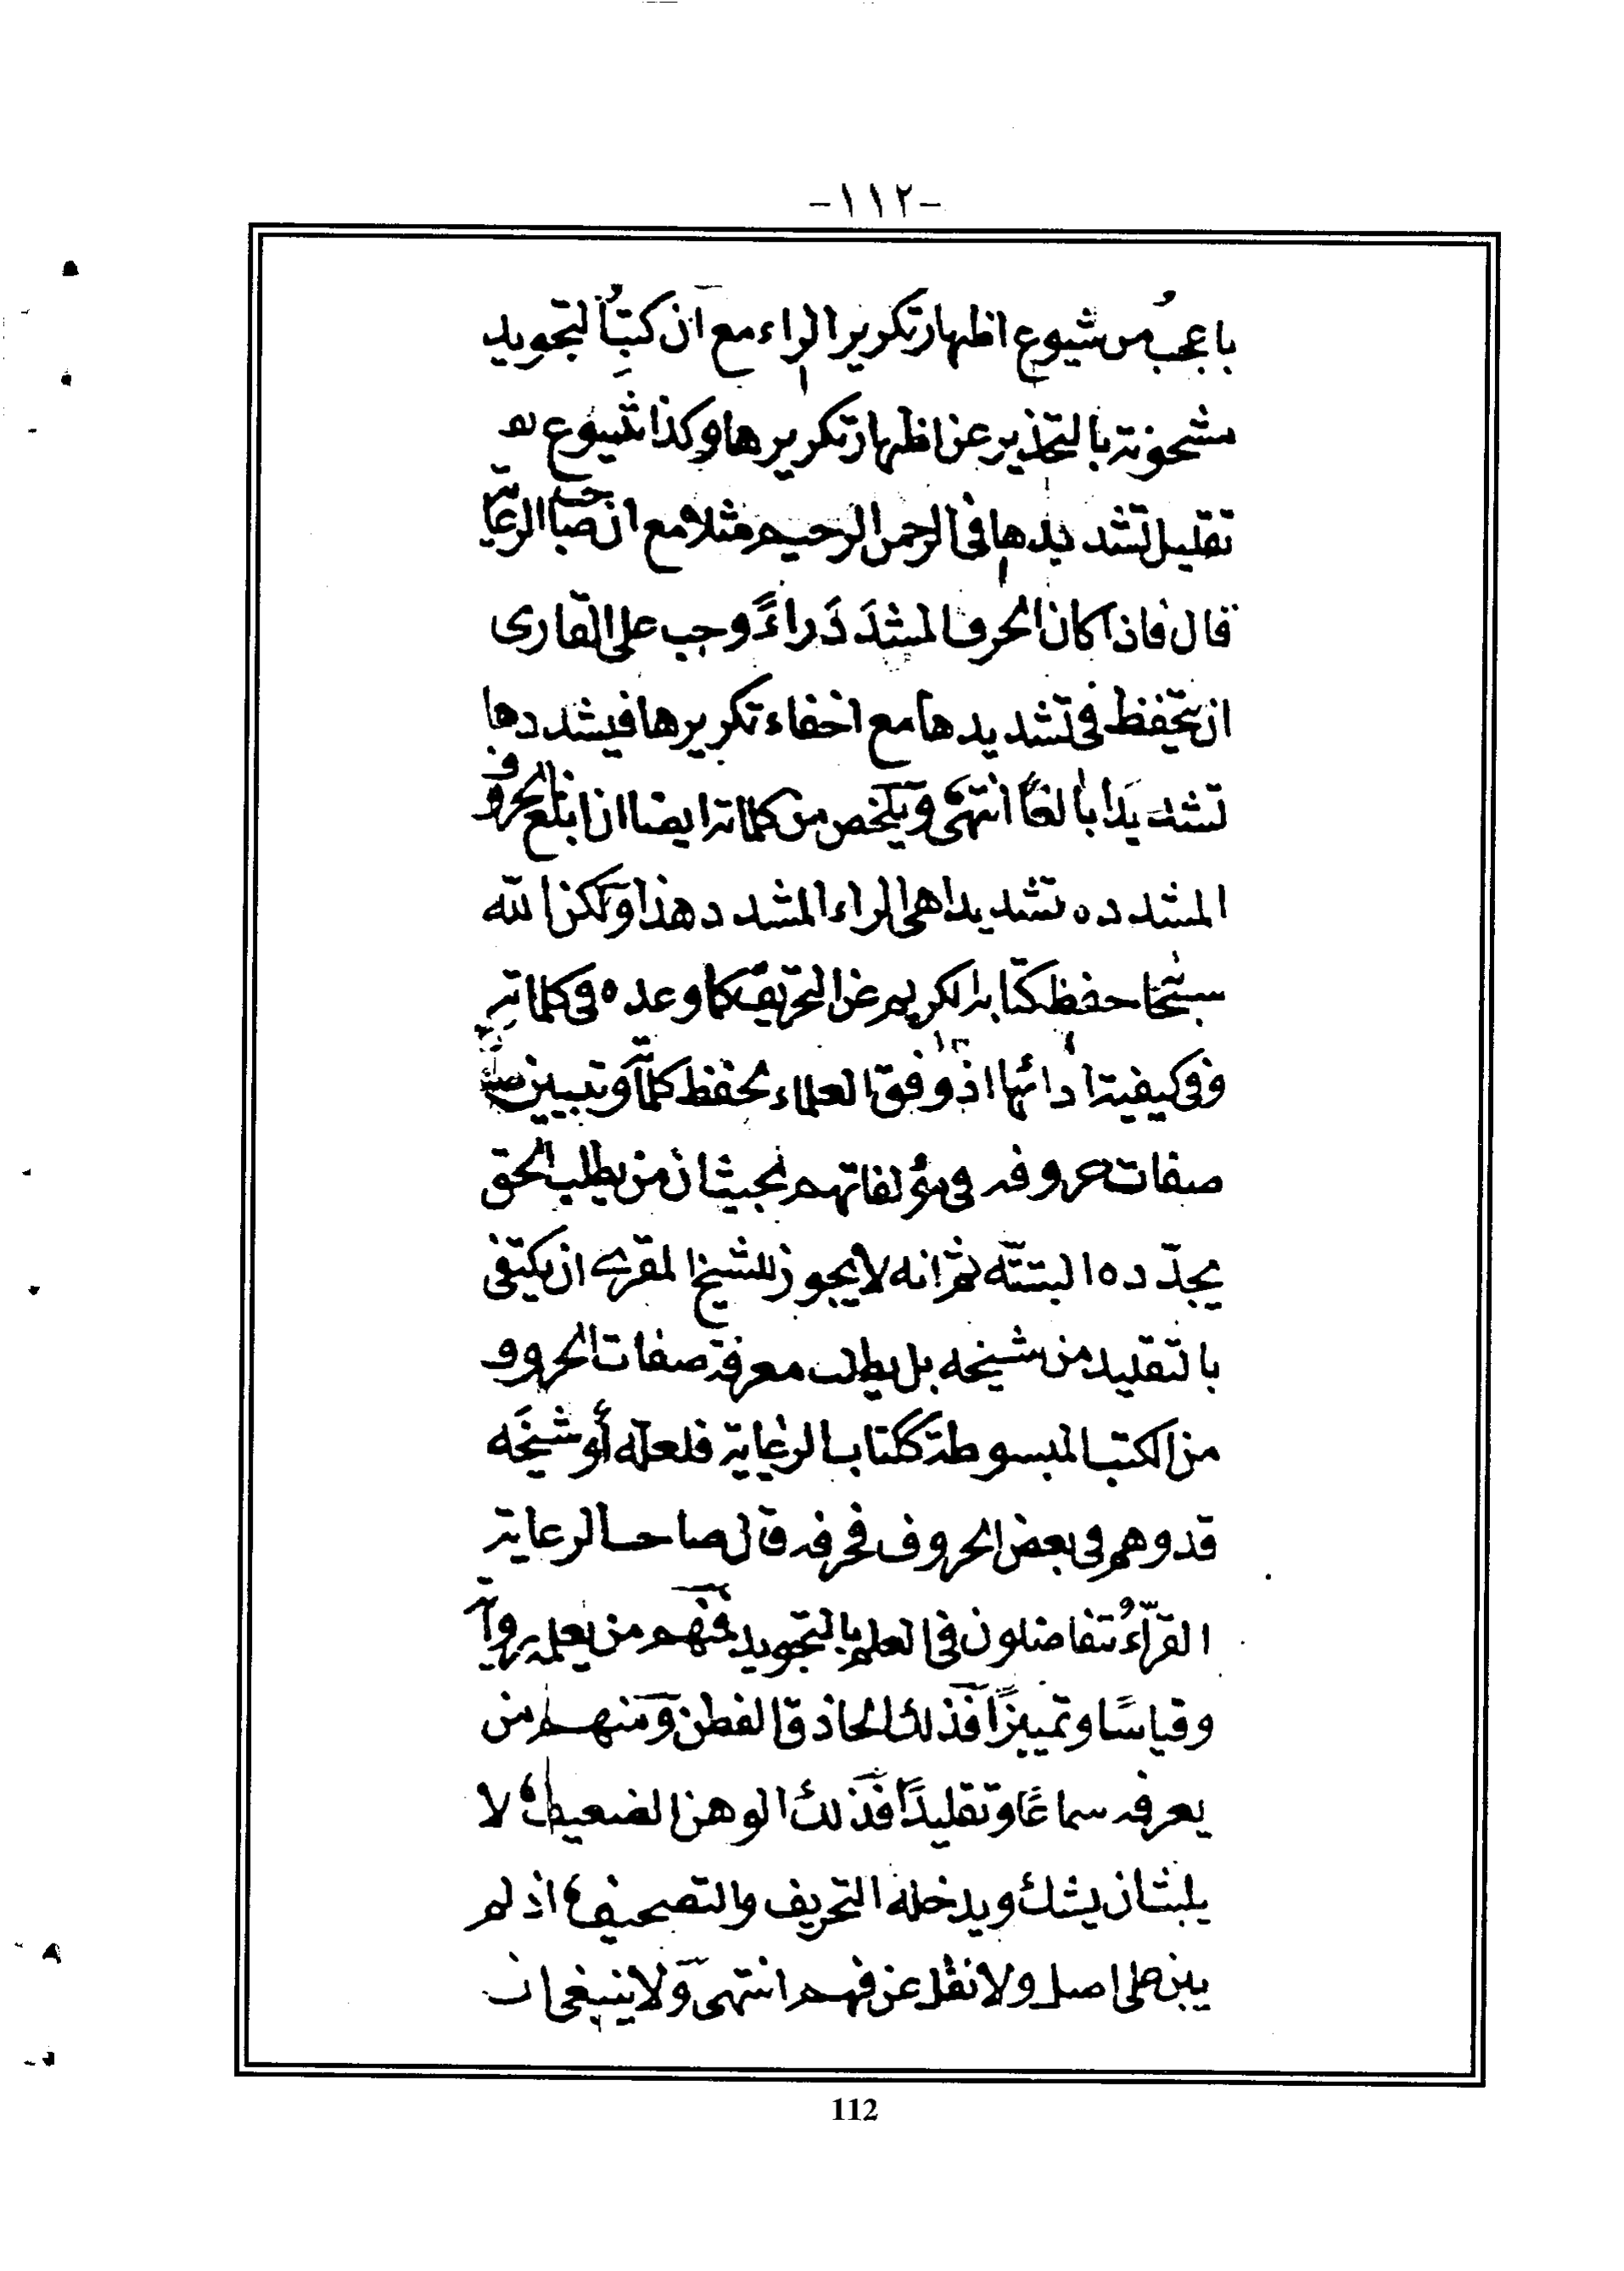 -١١٢-
باعجب من شيوع اظهار تكرير الراء مع ان كتب التجويد
مشحونة بالتحذير عن اظهار تكريرها وكذا شيوع
تقليل تشديدها في الرحمن الرحيم مثلا مع ان صاحب الرعاية
قال فاذا كان الحرف المشدَدَ راءً وجب على القارى
ان يتحفظ في تشديدها مع اخفاء تكريرها فيشددها
تشديدًا بالغًا انتهى ويتلخص من كلماته ايضا ان ابلغ الحروف
المشدده تشديدا هى الراء المشدد هذا ولكن الله
سبحانه حفظ كتابه الكريم عن التحريف كما وعده في كلماته
وفي كيفية ادائها اذ وفق العلماء لحفظ كلماته وتبيين
صفات حروفه في مؤلفاتهم بحيث ان من يطلب الحق
يجدّده البتته ثم انه لا يجوز للشيخ المقرى ان يكتفى
بالتقليد من شيخه بل يطلب معرفة صفات الحروف
من الكتب المبسوطة ككتاب الرعاية فلعله أو شيخَه
قد وهم في بعض الحروف فحرفه قال صاحب الرعاية
القرّاءُ تتفاضلون في العلم بالتجويد فمنهم من يعلمه رواية
وقياسًا وتمييزًا فذلك الحاذق الفطن ومنهم من
يعرفه سماعًا وتقليدًا فذلك الوهن الضعيف لا
يلبث ان يشك ويدخله التحريف والتصحيف اذ لم
يبن على اصل ولا نقل عن فهم انتهى ولا ينبغى ان
112